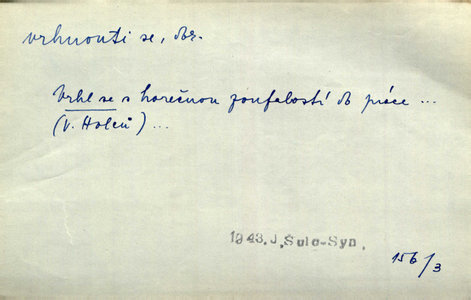 vrhnouti se, obr.
Vrhl se s horečnou zoufalostí do práce ...
(V. Holců) ...
1943, J, Šulc-Syn.
156/3